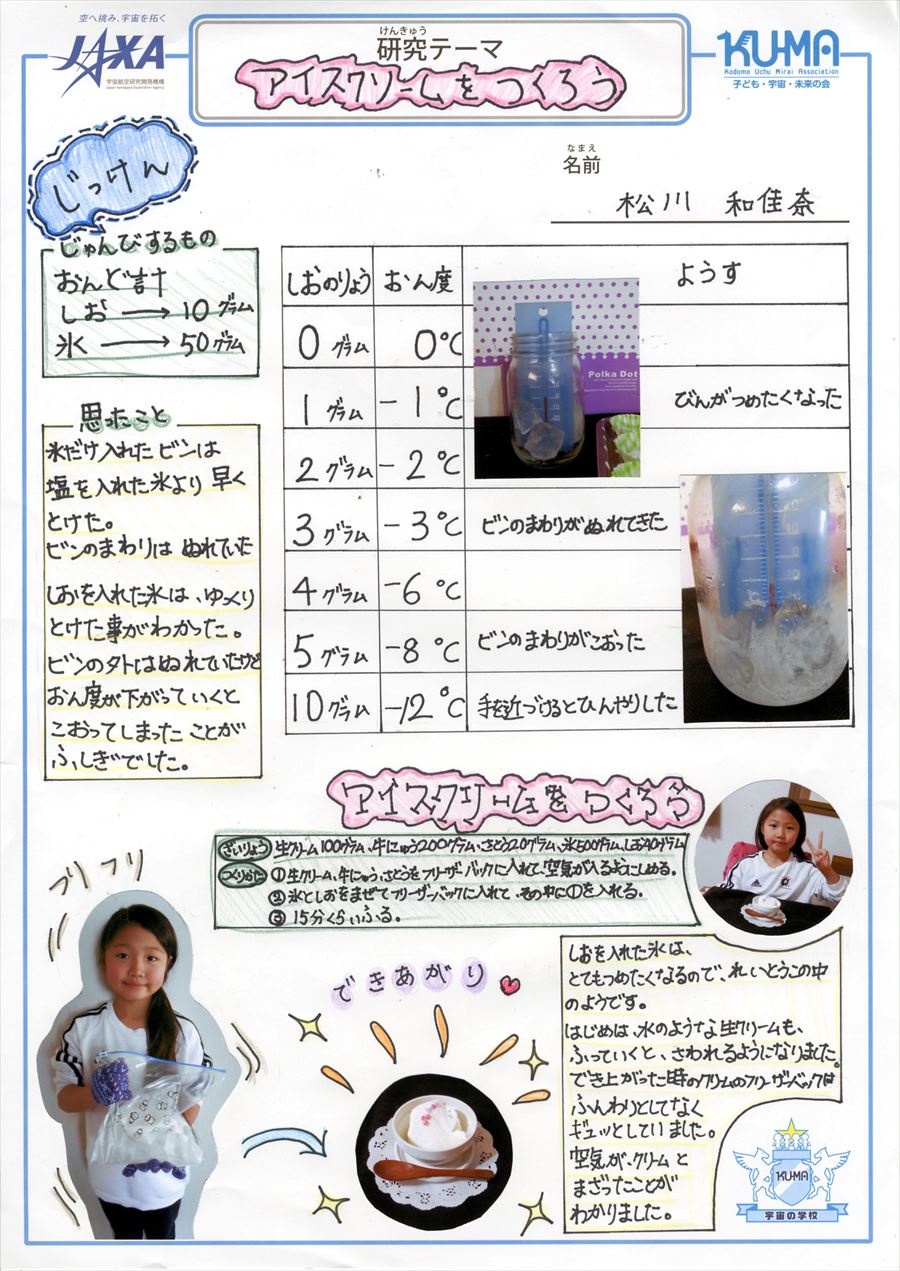 空へ挑み、宇宙を拓く
JAXA
宇宙航空研究開発機構
Japan Aerospace Exploration Agency
けんきゅう
研究テーマ
アイスクリームをつくろう
KU-MA
Kodomo Uchu Mirai Association
子ども・宇宙・未来の会
じっけん
なまえ
名前
松川 和佳奈
じゅんびするもの
おんど計
しお → 10グラム
氷 → 50グラム
しおのりょう おん度 ようす
0グラム 0℃
1グラム -1℃ びんがつめたくなった
2グラム -2℃
3グラム -3℃ ビンのまわりがぬれてきた
4グラム -6℃
5グラム -8℃ ビンのまわりがこおった
10グラム -12℃ 手を近づけるとひんやりした
Polka Dot
思ったこと
氷だけ入れたビンは
塩を入れた氷より早く
とけた。
ビンのまわりはぬれていた
しおを入れた氷は、ゆっくり
とけた事がわかった。
ビンの外はぬれていたけど
おん度が下がっていくと
こおってしまったことが
ふしぎでした。
アイスクリームをつくろう
ざいりょう 生クリーム100グラム、牛にゅう200グラム、さとう20グラム、氷500グラム、しお40グラム
つくりかた ①生クリーム、牛にゅう、さとうをフリーザーバックに入れて、空気が入るようにしめる。
②氷としおをまぜてフリーザーバックに入れて、その中に①を入れる。
③15分くらいふる。
フリフリ
できあがり
しおを入れた氷は、
とてもつめたくなるので、れいとうこの中
のようです。
はじめは、水のような生クリームも、
ふっていくと、さわれるようになりました。
でき上がった時のクリームのフリーザーバックは
ふんわりとしてなく
ギュッとしていました。
空気が、クリームと
まざったことが
わかりました。
KU-MA
宇宙の学校